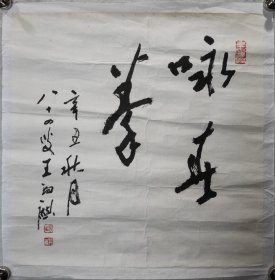 咏春
拳
辛丑秋月
八十四叟王